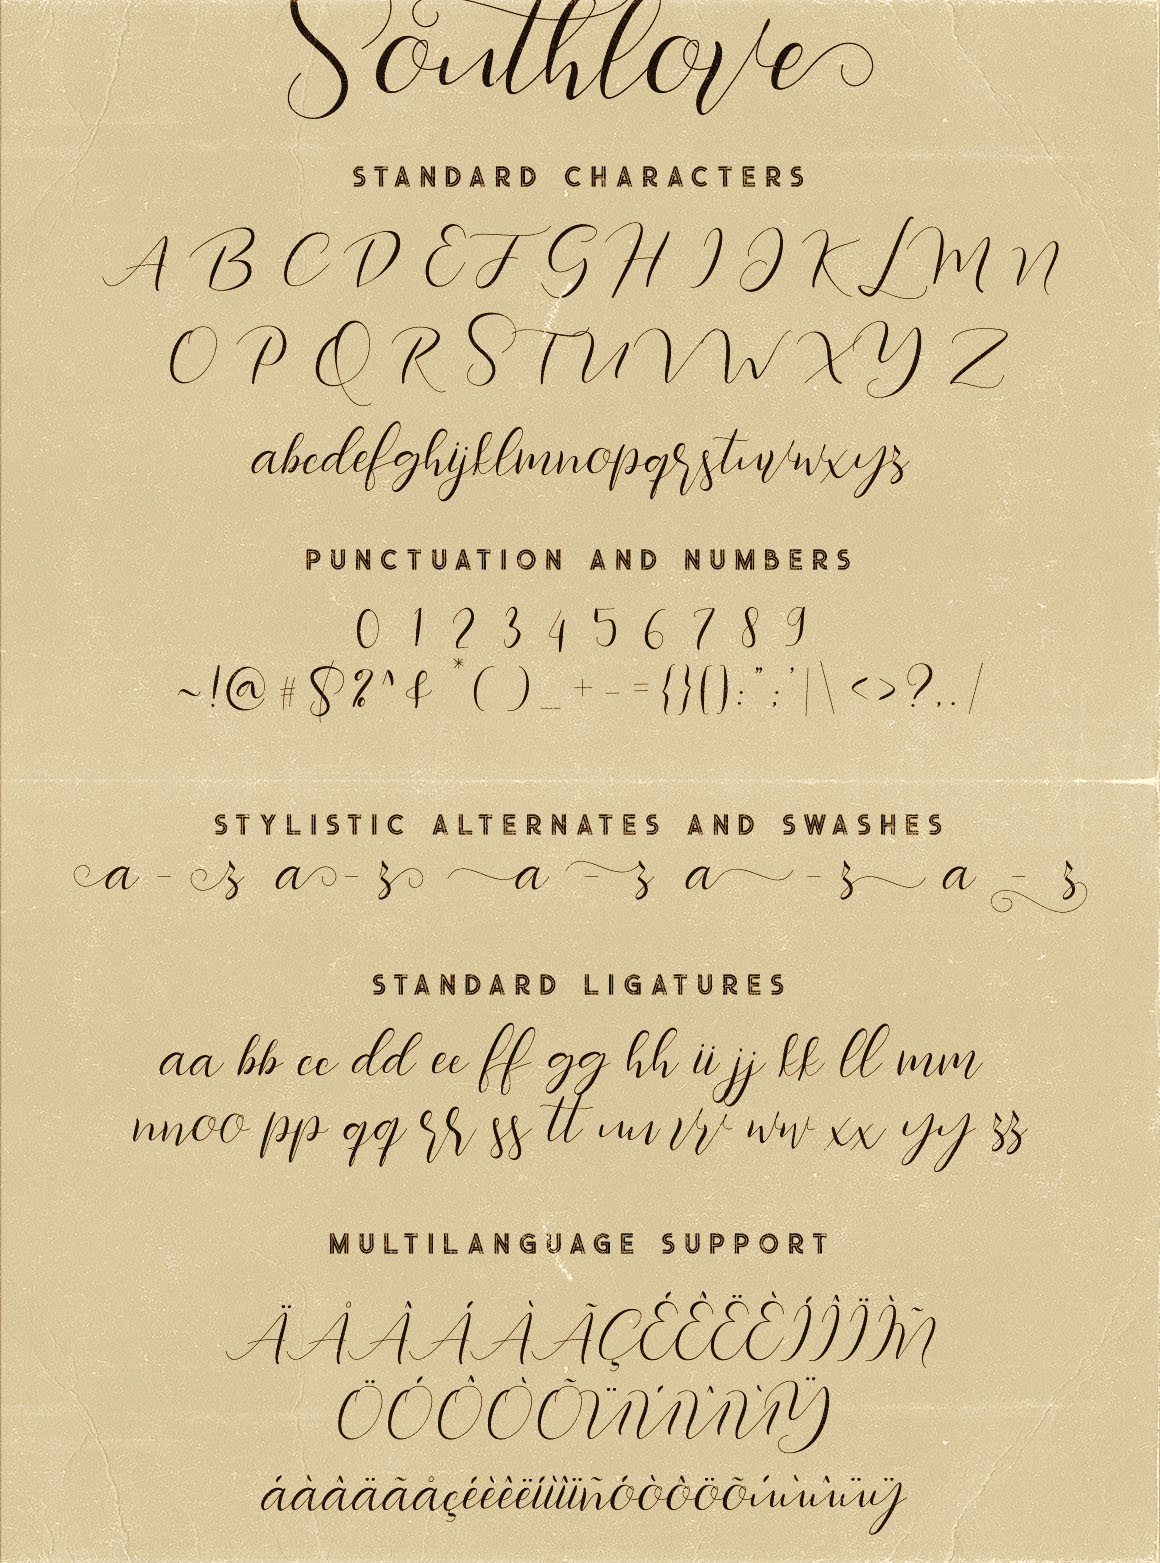 Southlove
STANDARD CHARACTERS
A B C D E F G H I J K L M N
O P Q R S T U V W X Y Z
abcdefghijklmnopqrstuvwxyz
PUNCTUATION AND NUMBERS
0 1 2 3 4 5 6 7 8 9
~!@#$%^&*()_+-={}[]:";'|\<>?,./
STYLISTIC ALTERNATES AND SWASHES
a - z a - z a - z a - z a - z
STANDARD LIGATURES
aa bb cc dd ee ff gg hh ii jj kk ll mm
nn oo pp qq rr ss tt uu vv ww xx yy zz
MULTILANGUAGE SUPPORT
ÄÅÂÁÀÃÇÉÊËÈÍÎÏÌÑ
ÖÓÔÒÕÜÚÛÙŸ
áàâäãåçéèêëíìîïñóòôöõúùûüÿ